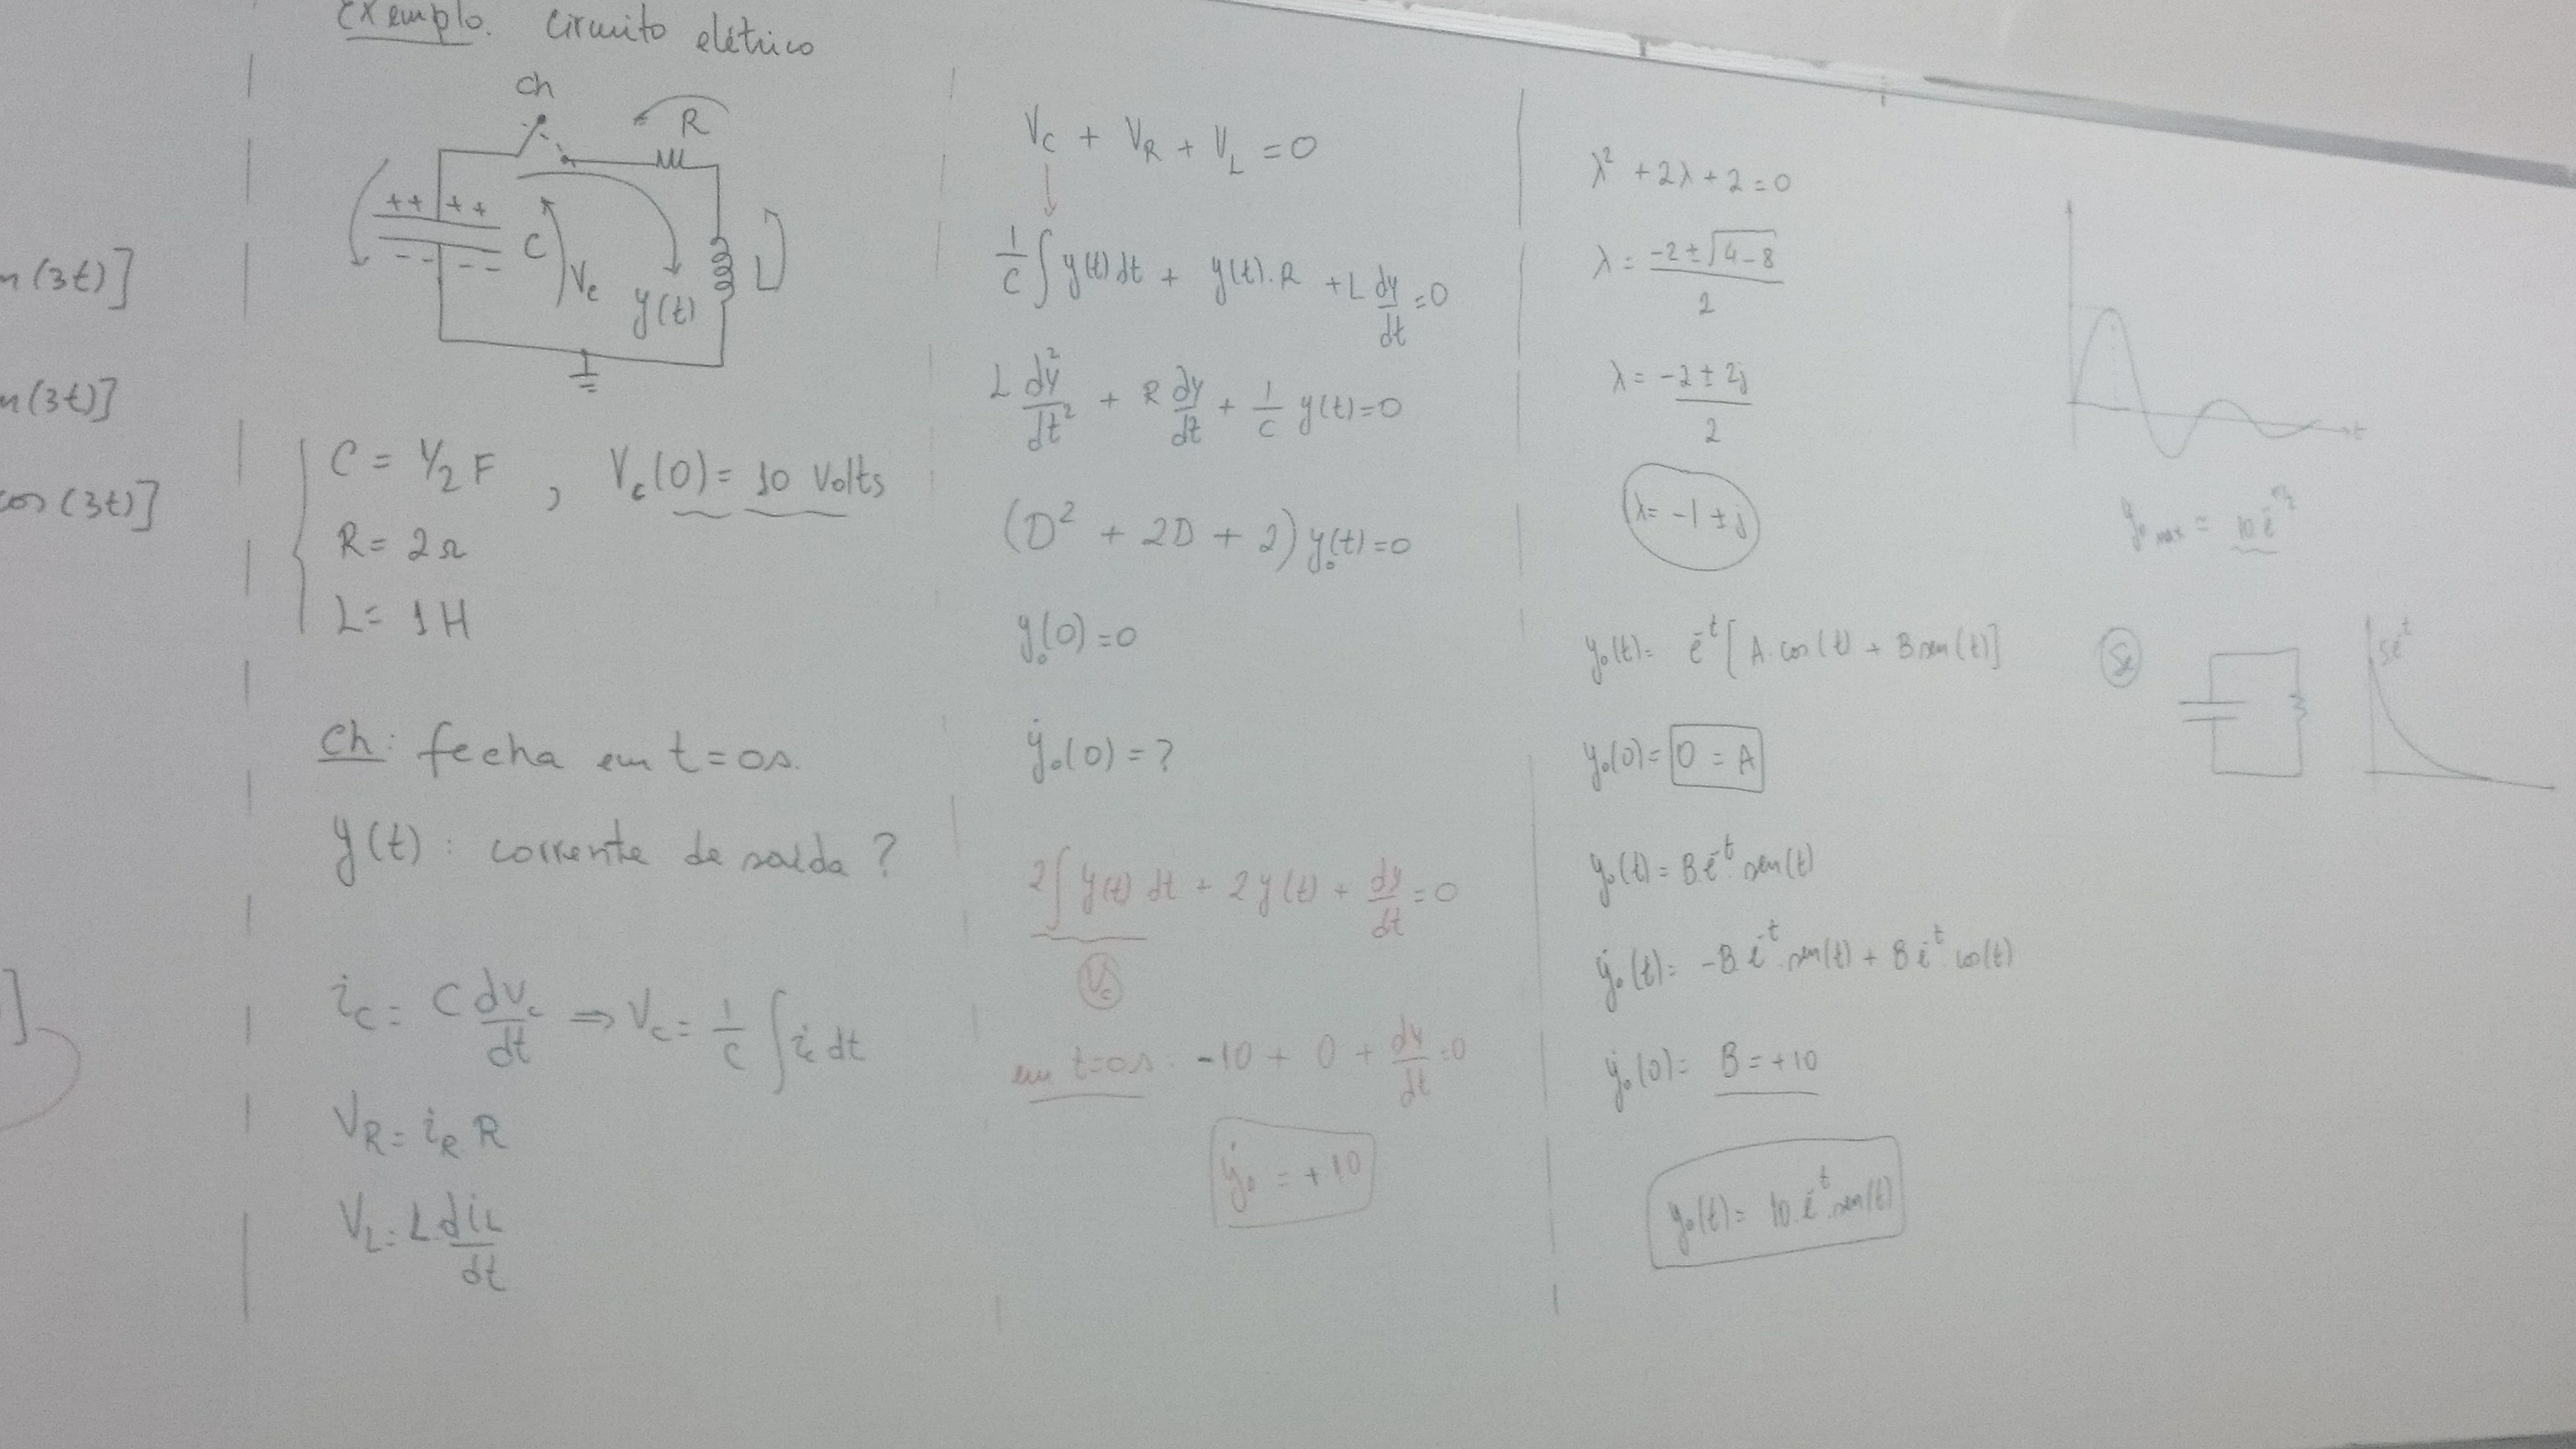 n(3t)]
n(3t)]
cos(3t)]
]
Exemplo. Circuito elétrico
Ch
R
++ ++
-- --
C
Vc
y(t)
L
C = 1/2 F , Vc(0) = 10 Volts
R = 2Ω
L = 1H
Ch: fecha em t=0s.
y(t): corrente de saída?
ic = C dVc/dt ⇒ Vc = 1/C ∫ic dt
VR = iR R
VL = L.diL/dt
Vc + VR + VL = 0
1/C ∫y(t)dt + y(t).R + L dy/dt = 0
L dy²/dt² + R dy/dt + 1/C y(t) = 0
(D² + 2D + 2) y₀(t) = 0
y₀(0) = 0
ẏ₀(0) = ?
2∫y(t) dt + 2y(t) + dy/dt = 0
Vc
em t=0s: -10 + 0 + dy/dt = 0
ẏ₀ = +10
λ² + 2λ + 2 = 0
λ = (-2 ± √(4-8))/2
λ = (-2 ± 2j)/2
λ = -1 ± j
y₀(t) = e^-t [A.cos(t) + B sen(t)]
y₀(0) = 0 = A
y₀(t) = B e^-t sen(t)
ẏ₀(t) = -B e^-t.sen(t) + B e^-t cos(t)
ẏ₀(0) = B = +10
y₀(t) = 10.e^-t.sen(t)
t
y₀ max = 10 e^-π/2
5e^-t